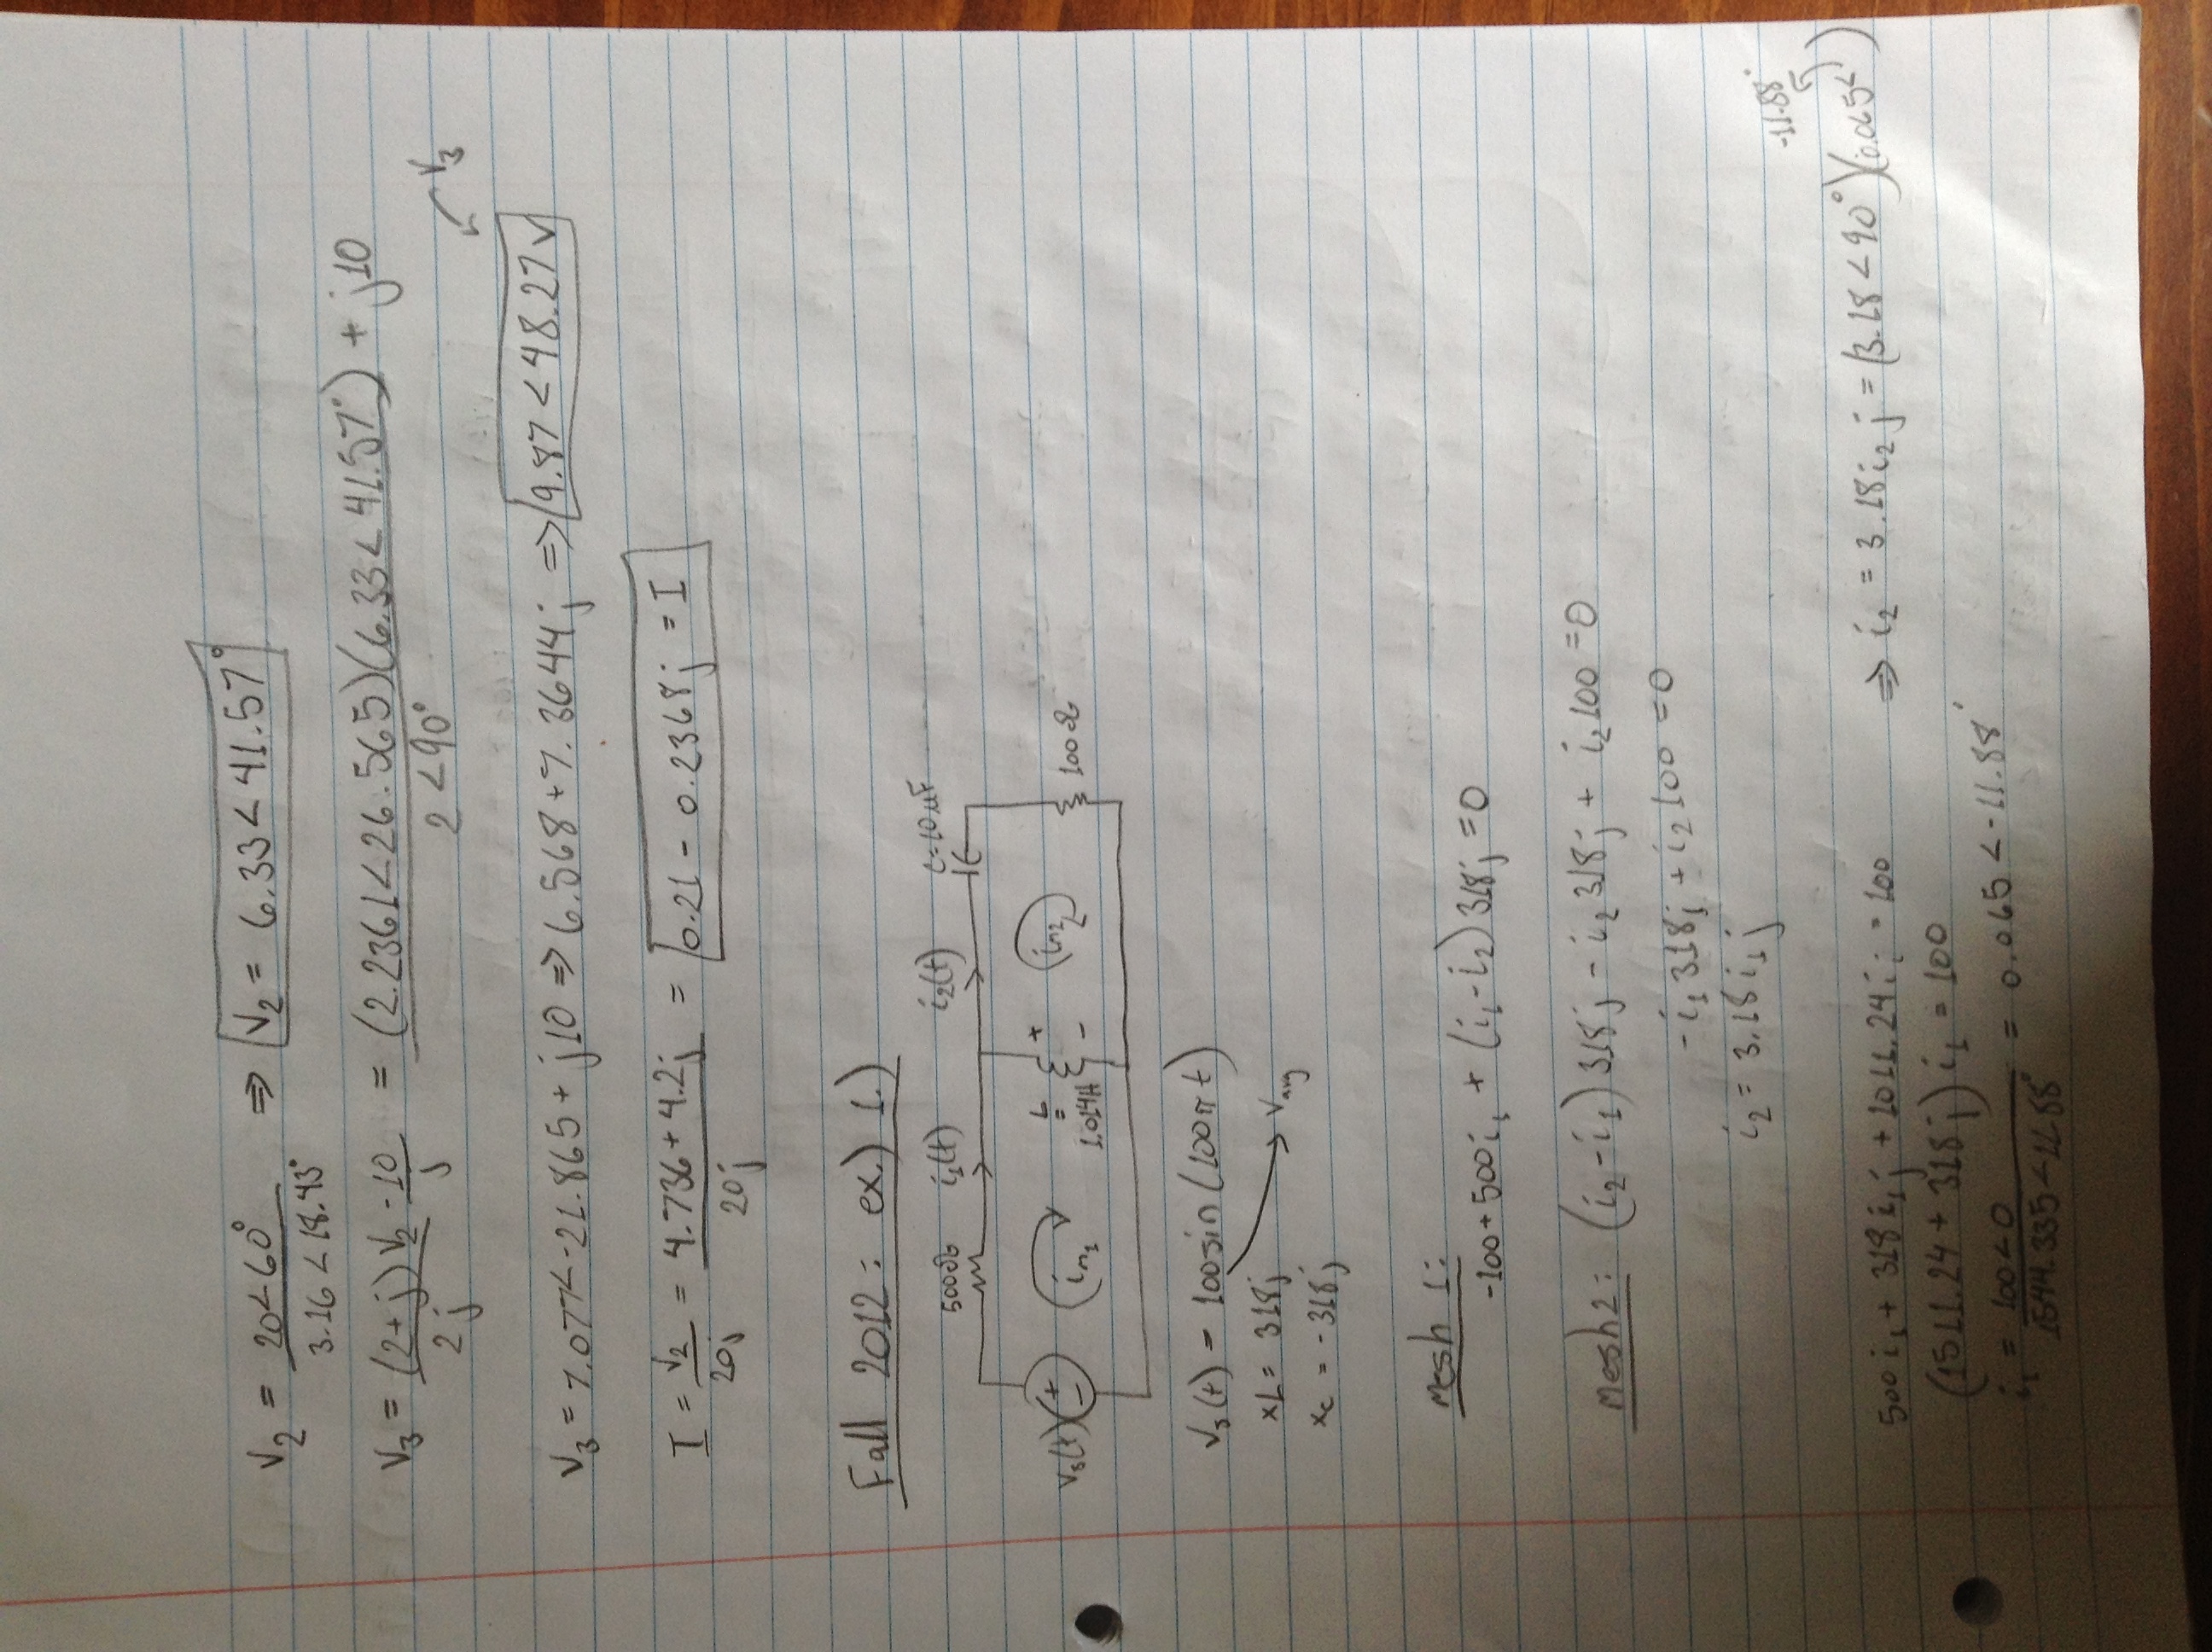 V₂ = 20<60° / 3.16<18.43° ⇒ V₂ = 6.33<41.57°
V₃ = (2+j)V₂ / 2j - 10/j = (2.2361<26.565)(6.33<41.57°) / 2<90° + j10
V₃
V₃ = 7.077<-21.865 + j10 ⇒ 6.568+7.3644j ⇒ 9.87<48.27V
I = V₂/20j = 4.736+4.2j / 20j = 0.21 - 0.2368j = I
Fall 2012: ex.) 1.)
500Ω i₁(t) i₂(t) C=10μF
Vs(t) + - im₁ L = 1.014H + - im₂ 100Ω
Vs(t) = 100sin(100πt)
xL = 318j → Vavg
xc = -318j
Mesh 1:
-100+500i₁ + (i₁-i₂)318j = 0
Mesh2: (i₂-i₁)318j - i₂318j + i₂100 = 0
-i₁318j + i₂100 = 0
i₂ = 3.18i₁j
-11.88°
500i₁ + 318i₁j + 1011.24i₁ = 100 ⇒ i₂ = 3.18i₂j = (3.18<90°)(0.065< )
(1511.24 + 318j)i₁ = 100
i₁ = 100<0 / 1544.335<11.88° = 0.065<-11.88°